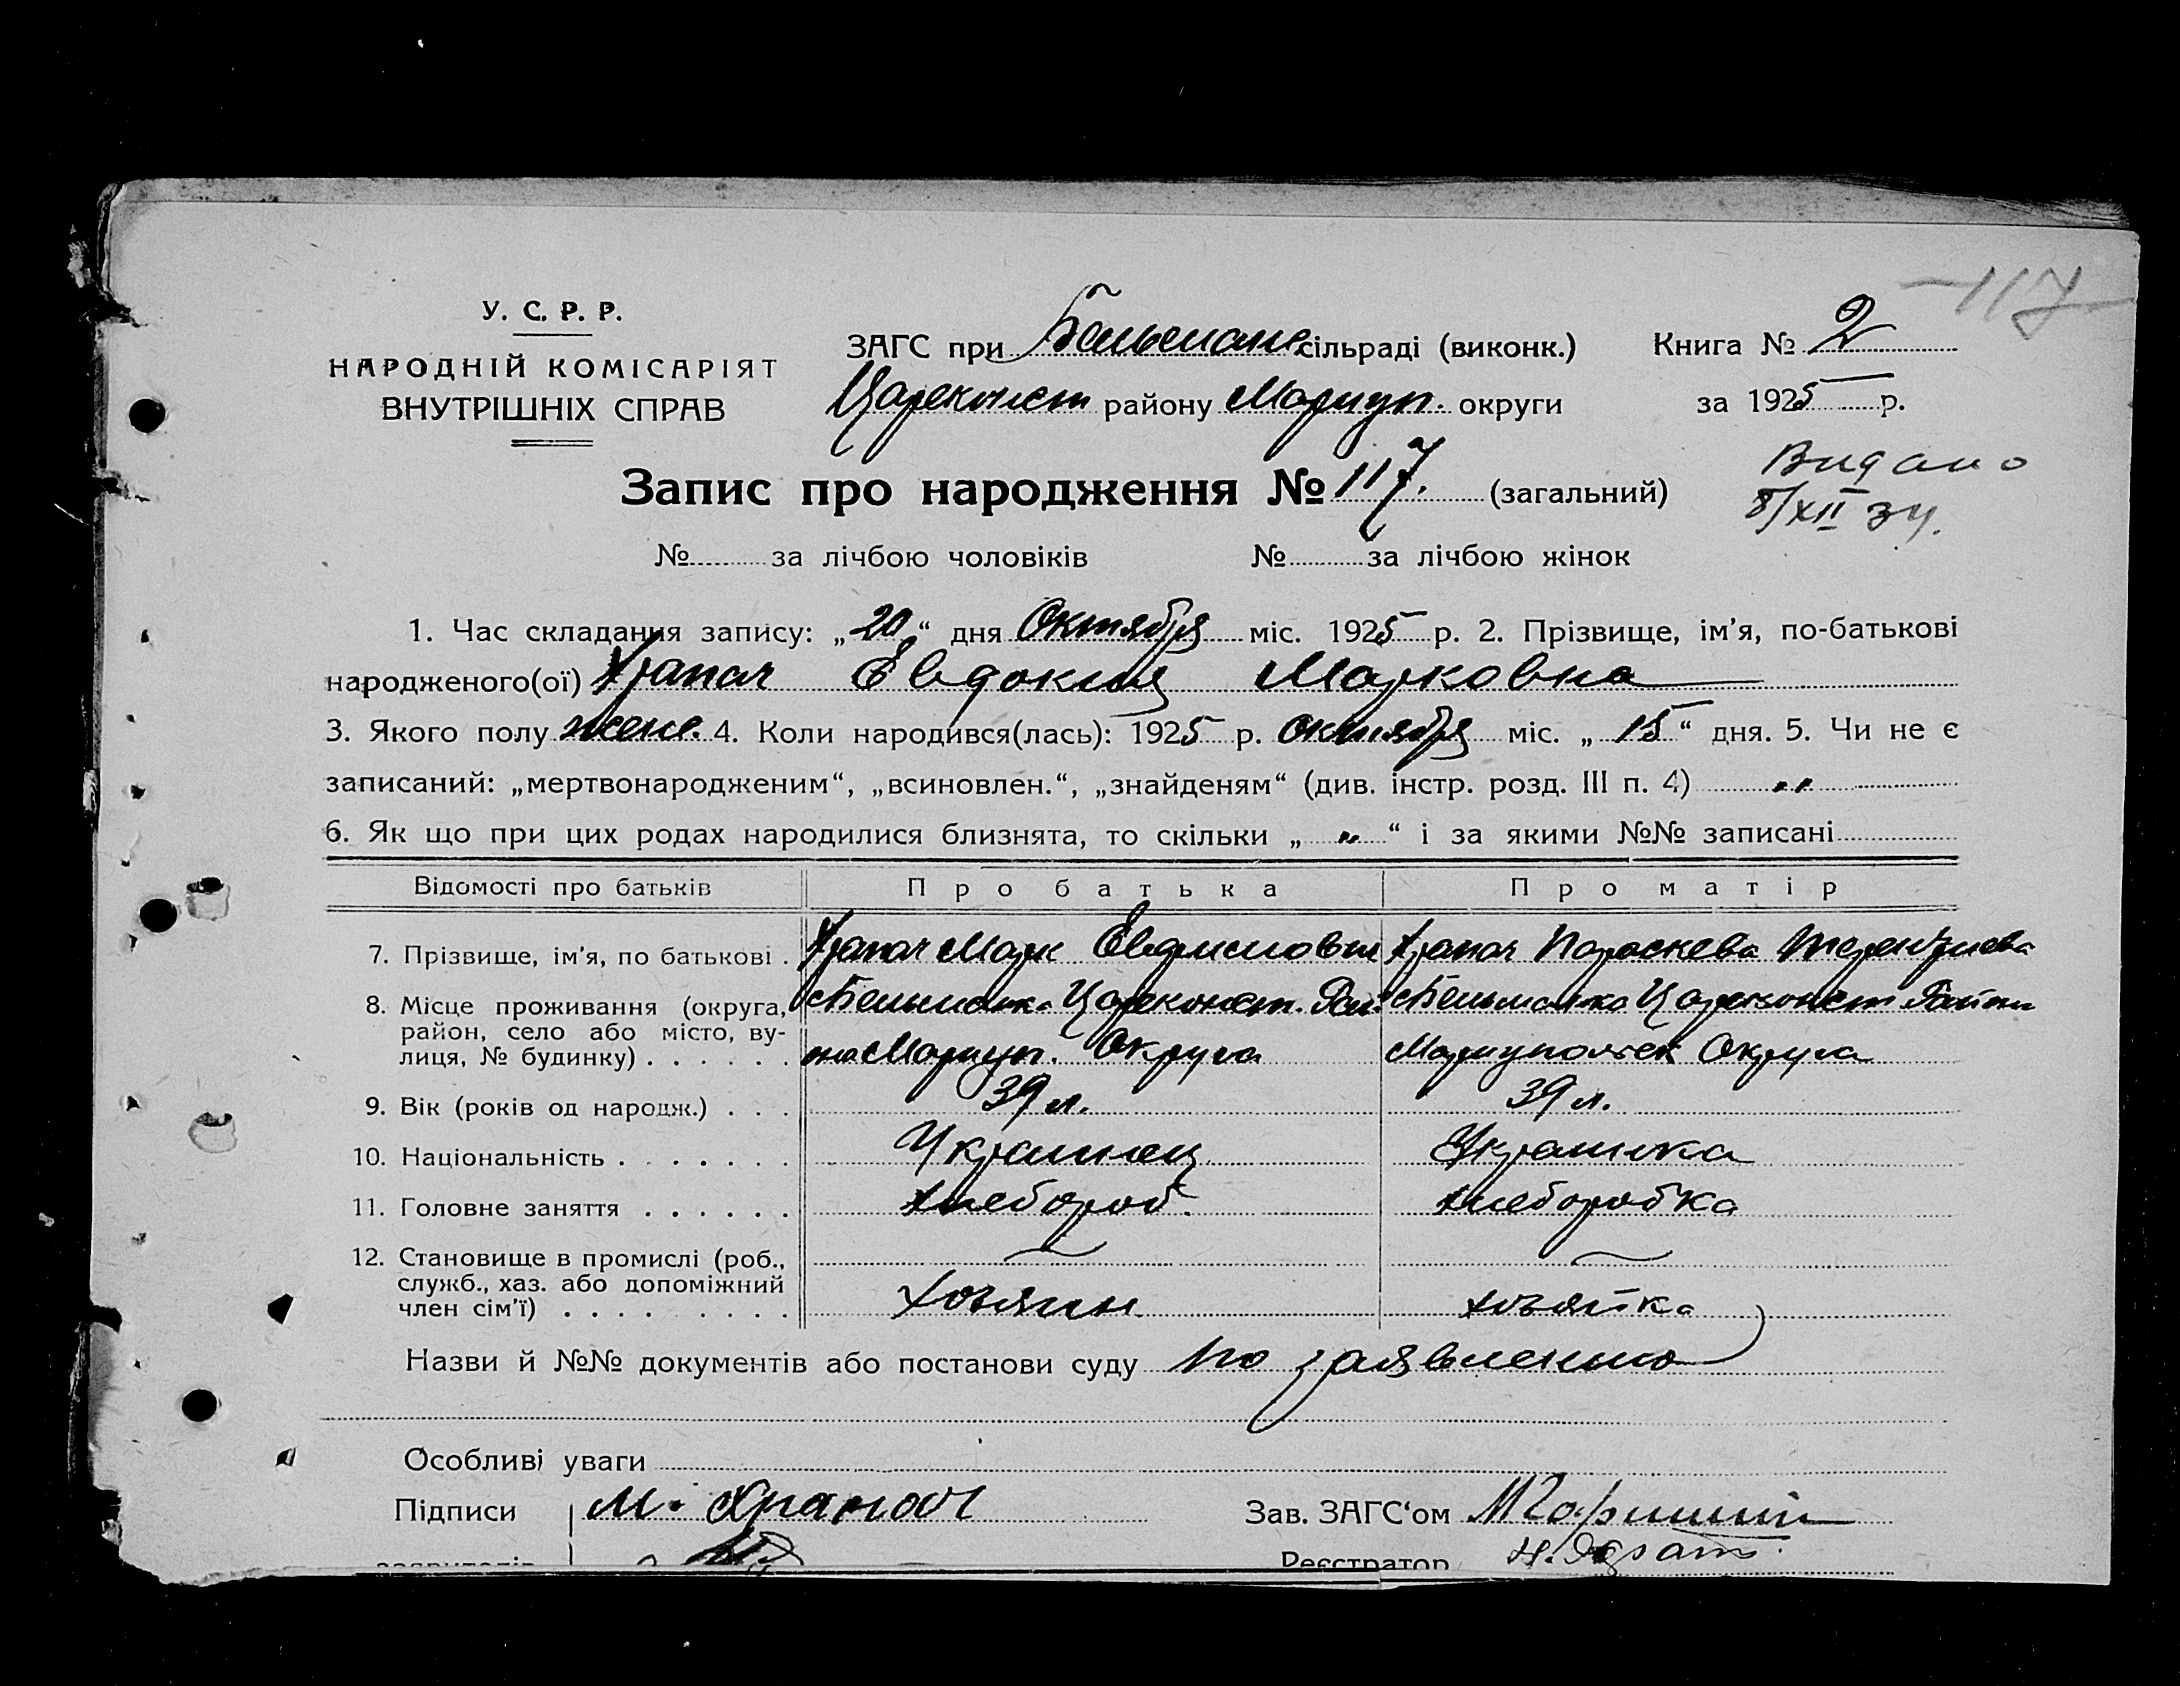 117
У. С. Р. Р.
НАРОДНІЙ КОМІСАРІЯТ
ВНУТРІШНІХ СПРАВ
ЗАГС при Бельманс. сільраді (виконк.)
Книга № 2
Цареконст району Мариуп. округи
за 1925 р.
Видано
8/XII 34.
Запис про народження № 117. (загальний)
№ за лічбою чоловіків № за лічбою жінок
1. Час складання запису: „20“ дня Октября міс. 1925 р. 2. Прізвище, ім'я, по-батькові
народженого(ої) Храпач Евдокия Марковна
3. Якого полу женс. 4. Коли народився(лась): 1925 р. Октября міс. „15“ дня. 5. Чи не є
записаний: „мертвонародженим“, „всиновлен.“, „знайденям“ (див. інстр. розд. III п. 4) „
6. Як що при цих родах народилися близнята, то скільки „ „ “ і за якими №№ записані
Відомості про батьків Про батька Про матір
7. Прізвище, ім'я, по батькові . Храпач Марк Храпач Параскева Терентиева
8. Місце проживання (округа, район, село або місто, вулиця, № будинку) . . . . . .
с Бельманка Цареконст. Рай-
она Мариуп. Округа
с Бельманка Цареконст Района
Мариупольск Округа
9. Вік (років од народж.) . . . 39 л. 39 л.
10. Національність . . . . . . . Украинец Украинка
11. Головне заняття . . . . . . хлебороб. хлеборобка
12. Становище в промислі (роб., — —
служб., хаз. або допоміжний
член сім'ї) . . . . . . . . . Хозяин хозяйка
Назви й №№ документів або постанови суду по заявлению
Особливі уваги
Підписи М. Храпач Зав. ЗАГС‘ом
заявителів Реєстратор